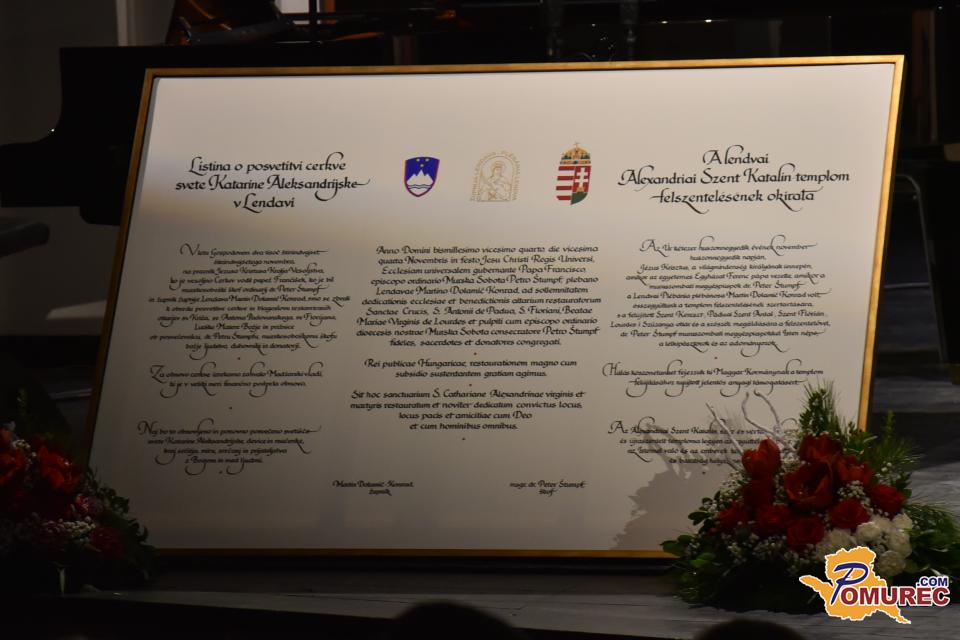 Listina o posvetitvi cerkve
svete Katarine Aleksandrijske
v Lendavi
V letu Gospodovem dva tisoč štiriindvajset
štiriindvajsetega novembra,
na praznik Jezusa Kristusa Kralja Vesoljstva,
ko je vesoljno Cerkev vodil papež Frančišek, ko je bil
murskosoboški škof ordinarij dr. Peter Štumpf
in župnik župnije Lendava Martin Dolamić Konrad, smo se zbrali
k obredu posvetitve cerkve in blagoslovu restavriranih
oltarjev sv. Križa, sv. Antona Padovanskega, sv. Florjana,
Lurške Matere Božje in prižnice
po posvečevalcu, dr. Petru Štumpfu, murskosoboškemu škofu
božje ljudstvo, duhovniki in donatorji.
Za obnovo cerkve izrekamo zahvalo Madžarski vladi,
ki je v veliki meri finančno podprla obnovo.
Naj bo to obnovljeno in ponovno posvečeno svetišče
svete Katarine Aleksandrijske, device in mučenke,
kraj srečanja, miru, srečanj in prijateljstva
z Bogom in med ljudmi.
ŽUPNIJA LENDAVA · PLÉBÁNIA LENDVA
Anno Domini bismillesimo vicesimo quarto die vicesima
quarta Novembris in festo Jesu Christi Regis Universi,
Ecclesiam universalem gubernante Papa Francisco,
episcopo ordinario Murska Sobota Petro Štumpf, plebano
Lendavae Martino Dolamić Konrad, ad sollemnitatem
dedicationis ecclesiae et benedictionis altarium restauratorum
Sanctae Crucis, S. Antonii de Padua, S. Floriani, Beatae
Mariae Virginis de Lourdes et pulpiti cum episcopo ordinario
dioecesis nostrae Murska Sobota consecratore Petro Štumpf
fideles, sacerdotes et donatores congregati.
Rei publicae Hungaricae, restaurationem magno cum
subsidio sustentantem gratiam agimus.
Sit hoc sanctuarium S. Catharinae Alexandrinae virginis et
martyris restauratum et noviter dedicatum convictus locus,
locus pacis et amicitiae cum Deo
et cum hominibus omnibus.
Martin Dolamić Konrad,
župnik
msgr. dr. Peter Štumpf
škof
A lendvai
Alexandriai Szent Katalin templom
felszentelésének okirata
Az Úr kétezer huszonnegyedik évének november
huszonnegyedik napján,
Jézus Krisztus, a világmindenség királyának ünnepén,
amikor az egyetemes Egyházat Ferenc pápa vezette, amikor a
muraszombati megyéspüspök dr. Peter Štumpf,
a Lendvai Plébánia plébánosa Martin Dolamić Konrad volt,
összegyűltünk a templom felszentelésének szertartására,
s a felújított Szent Kereszt, Páduai Szent Antal, Szent Flórián,
Lourdes-i Szűzanya oltár és a szószék megáldására a felszentelővel,
dr. Peter Štumpf muraszombati megyéspüspökkel Isten népe,
a lelkipásztorok és az adományozók.
Hálás köszönetünket fejezzük ki Magyar Kormánynak a templom
felújításához nyújtott jelentős anyagi támogatásért.
Az Alexandriai Szent Katalin, szűz és vértanú
és újraszentelt temploma legyen az együttlét
az Istennel való és az emberek
és barátság helye
POMUREC.COM